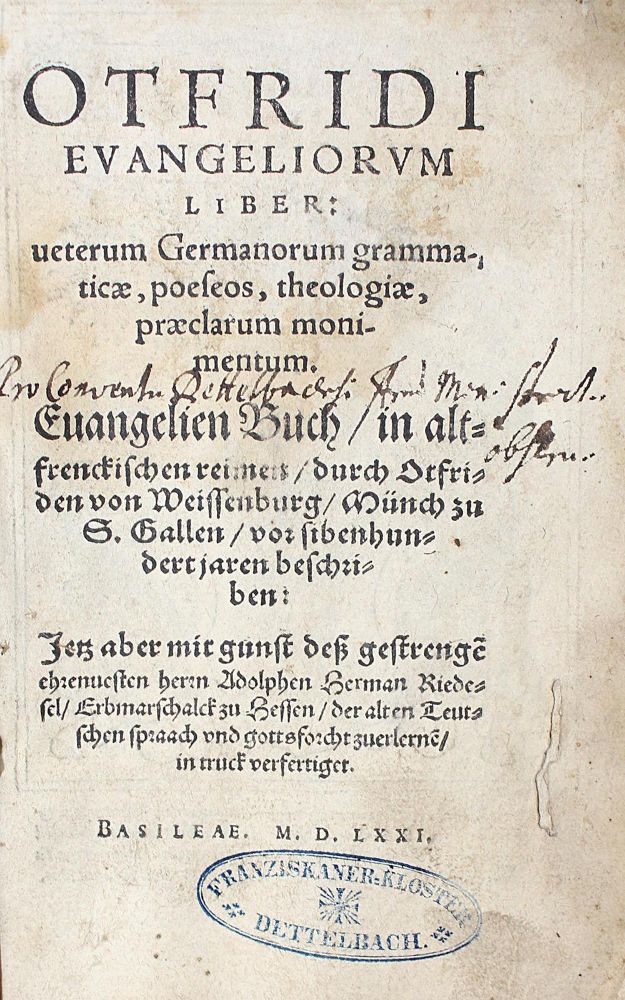 OTFRIDI
EVANGELIORVM
LIBER:
ueterum Germanorum gramma-
ticæ, poeſeos, theologiæ,
præclarum moni-
mentum.
Pro Conventu Dettelbacensi
Euangelien Buch / in alt⸗
frenckiſchen reimen / durch Otfri⸗
den von Weiſſenburg / Münch zu
S. Gallen / vor ſibenhun⸗
dert jaren beſchri⸗
ben:
Jetz aber mit gunſt deß geſtrengē
ehrenueſten herrn Adolphen Herman Riede⸗
ſel / Erbmarſchalck zu Heſſen / der alten Teut⸗
ſchen ſpraach vnd gottsforcht zuerlernē /
in truck verfertiget.
BASILEAE. M. D. LXXI.
FRANZISKANER-KLOSTER
DETTELBACH.